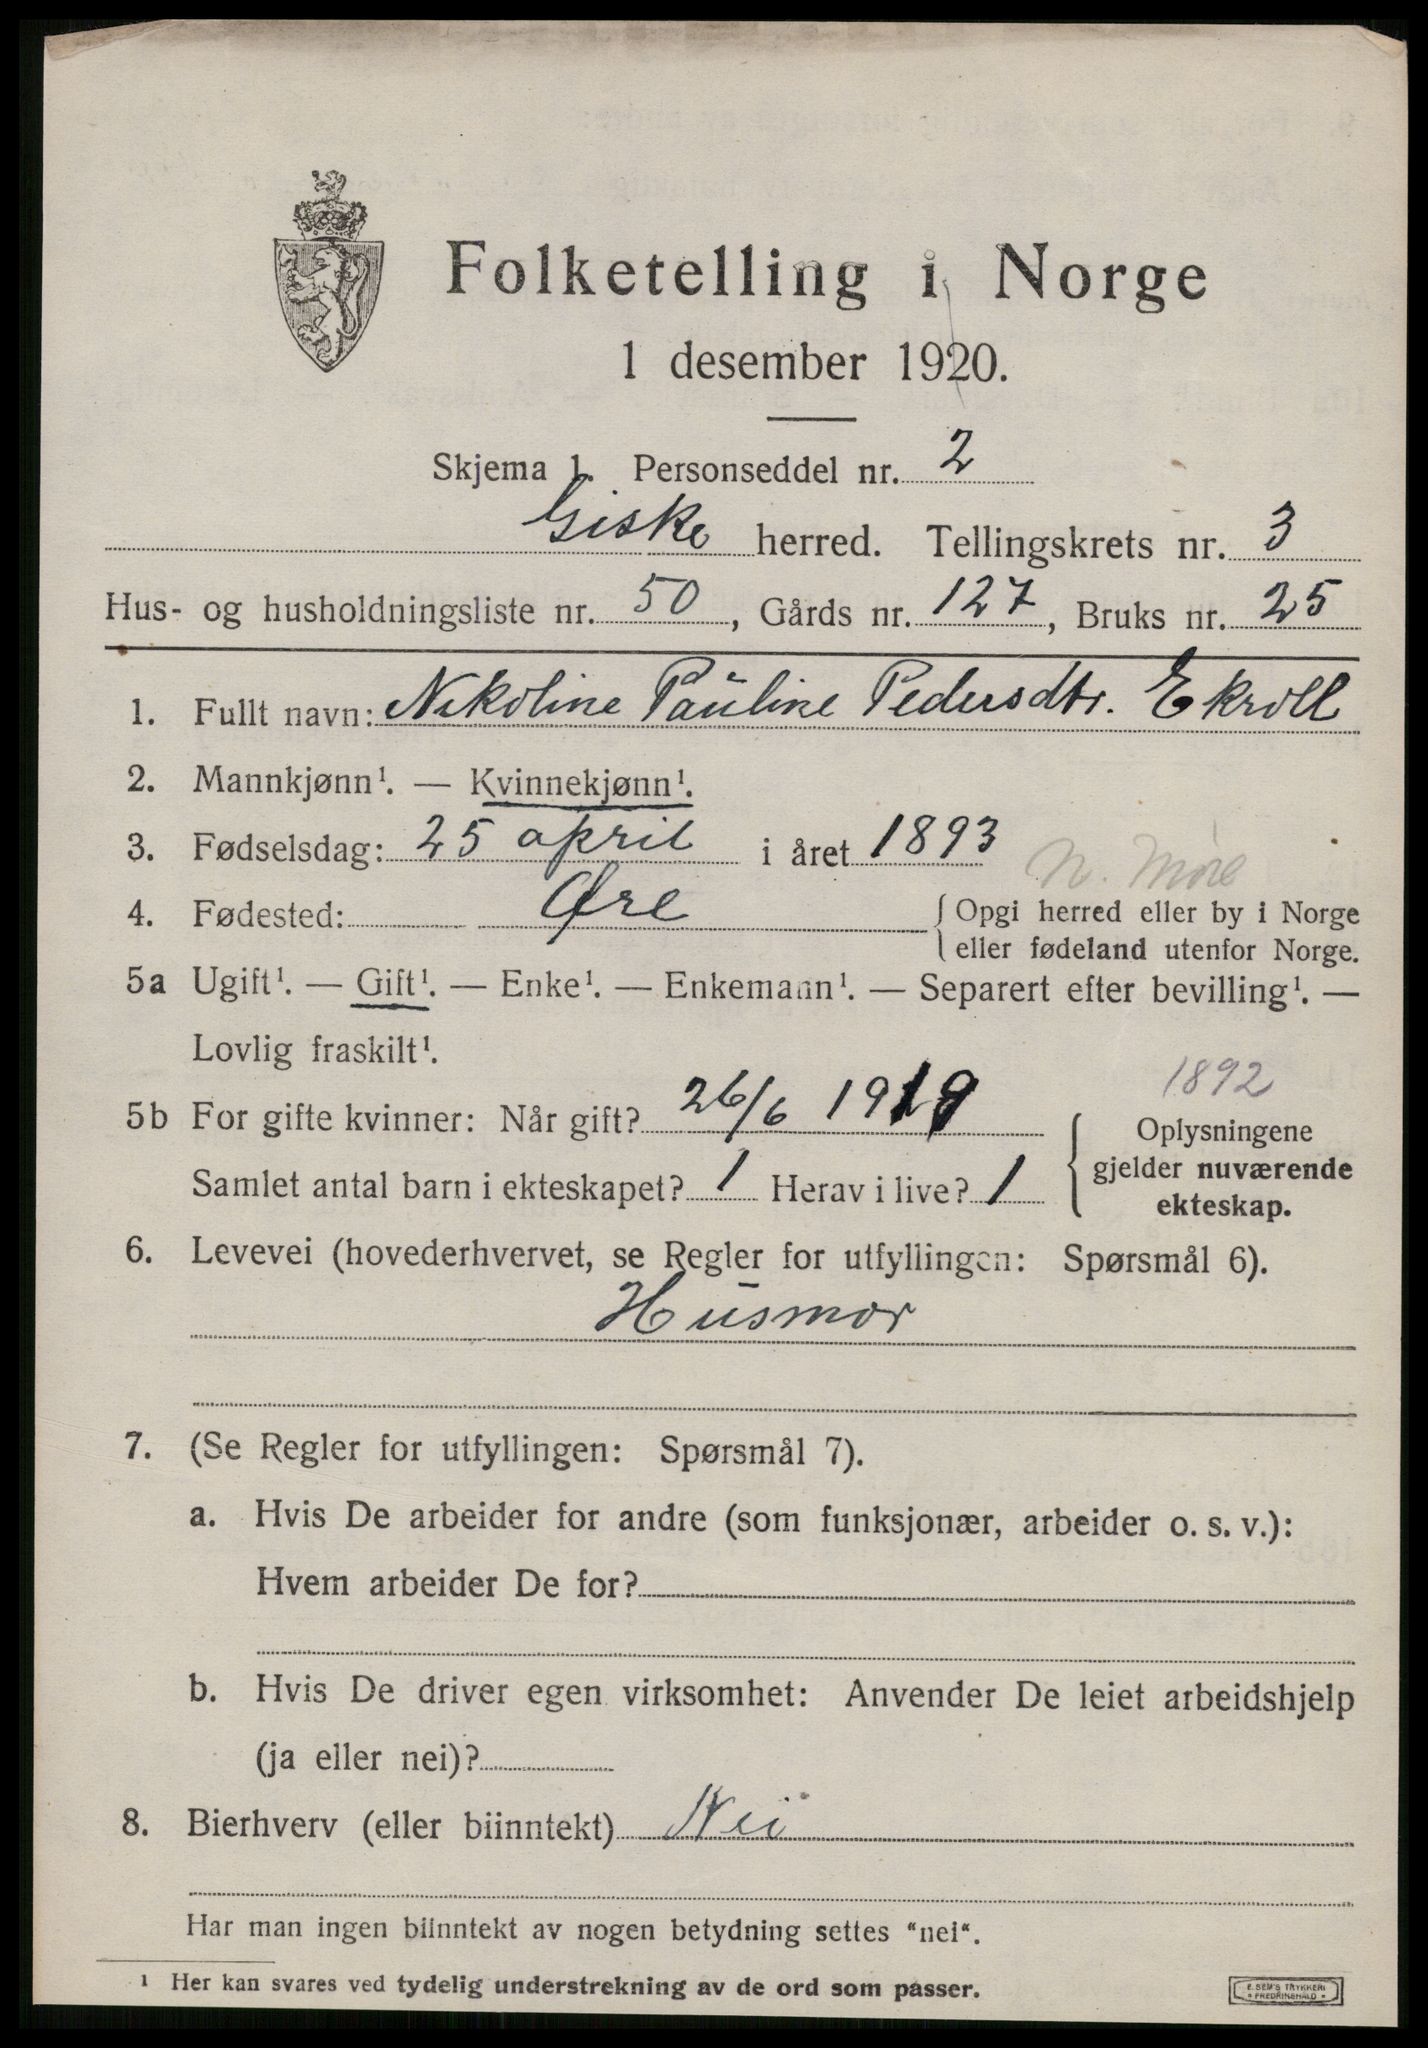 Folketelling i Norge
1 desember 1920.
Skjema 1. Personseddel nr. 2
Giske herred. Tellingskrets nr. 3
Hus- og husholdningsliste nr. 50, Gårds nr. 127, Bruks nr. 25
1. Fullt navn: Nikoline Pauline Pedersdtr. Ekroll
2. Mannkjønn¹. — Kvinnekjønn¹.
3. Fødselsdag: 25 april i året 1893
N. Møre
4. Fødested: Øre { Opgi herred eller by i Norge
eller fødeland utenfor Norge.
5a Ugift¹. — Gift¹. — Enke¹. — Enkemann¹. — Separert efter bevilling¹. —
Lovlig fraskilt¹.
1892
5b For gifte kvinner: Når gift? 26/6 1919
Samlet antal barn i ekteskapet? 1 Herav i live? 1
{ Oplysningene
gjelder nuværende
ekteskap.
6. Levevei (hovederhvervet, se Regler for utfyllingen: Spørsmål 6).
Husmor
7. (Se Regler for utfyllingen: Spørsmål 7).
a. Hvis De arbeider for andre (som funksjonær, arbeider o. s. v.):
Hvem arbeider De for?
b. Hvis De driver egen virksomhet: Anvender De leiet arbeidshjelp
(ja eller nei)?
8. Bierhverv (eller biinntekt) Nei
Har man ingen biinntekt av nogen betydning settes "nei".
¹ Her kan svares ved tydelig understrekning av de ord som passer.
E. SEM'S TRYKKERI
FREDRIKSHALD